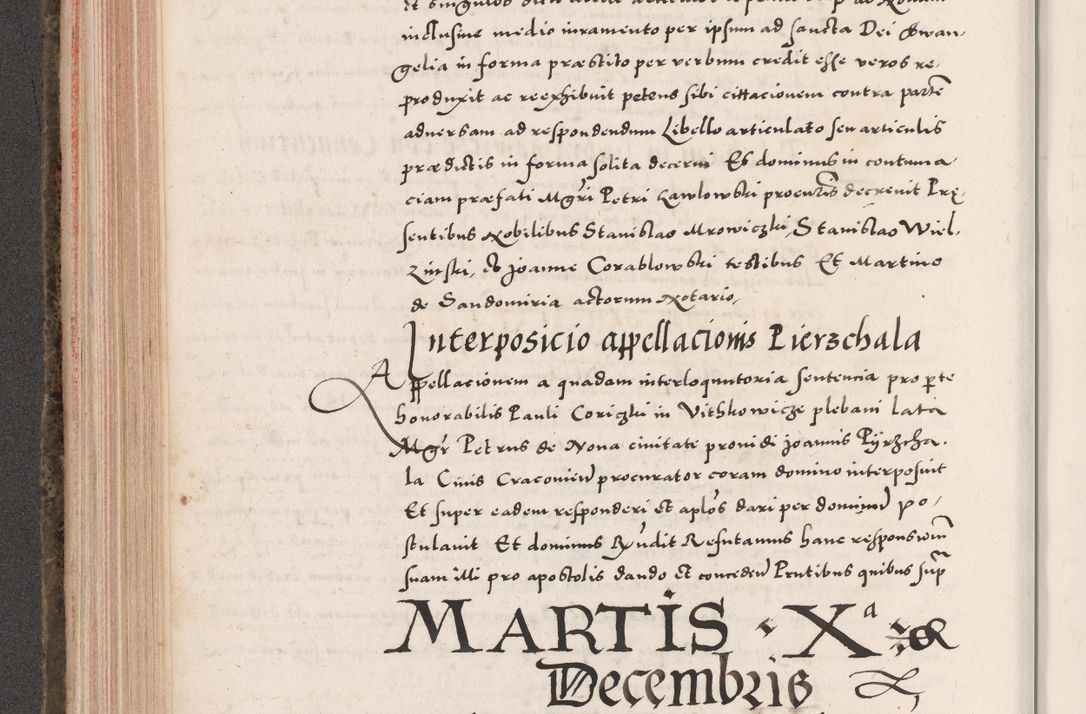 inclusive medio iuramento per ipsum ad sancta Dei Ewan-
gelia in forma præstito per verbum credit esse veros re-
produxit ac reexhibuit petens sibi cittacionem contra partē
adversam ad respondendum Libello articulato seu articulis
prædictis in forma solita decerni Et dominus in contuma
ciam præfati Mgri Petri Lawlowski procuris decrevit Præ-
sentibus Nobilibus Stanislao Mrowiczki, Stanislao Wiel-
zinski, et Joanne Corablowski testibus Et Martino
de Sandomiria actorum Notario,
Interposicio appellacionis Pierzchala
Appellacionem a quadam interloquutoria sentencia pro pte
honorabilis Pauli Coriczki in Vithkowicze plebani lata
Mgr Petrus de Nova civitate providi Joannis Pÿrzcha-
la Civis Cracovien procurator coram domino interposuit
Et super eadem responderi et aplos dari per dominum po-
stulavit Et dominus Refutamus hanc responsionem
suam illi pro apostolis dando et conceden Pntibus quibus sup
MARTIS · Xa
Decembris